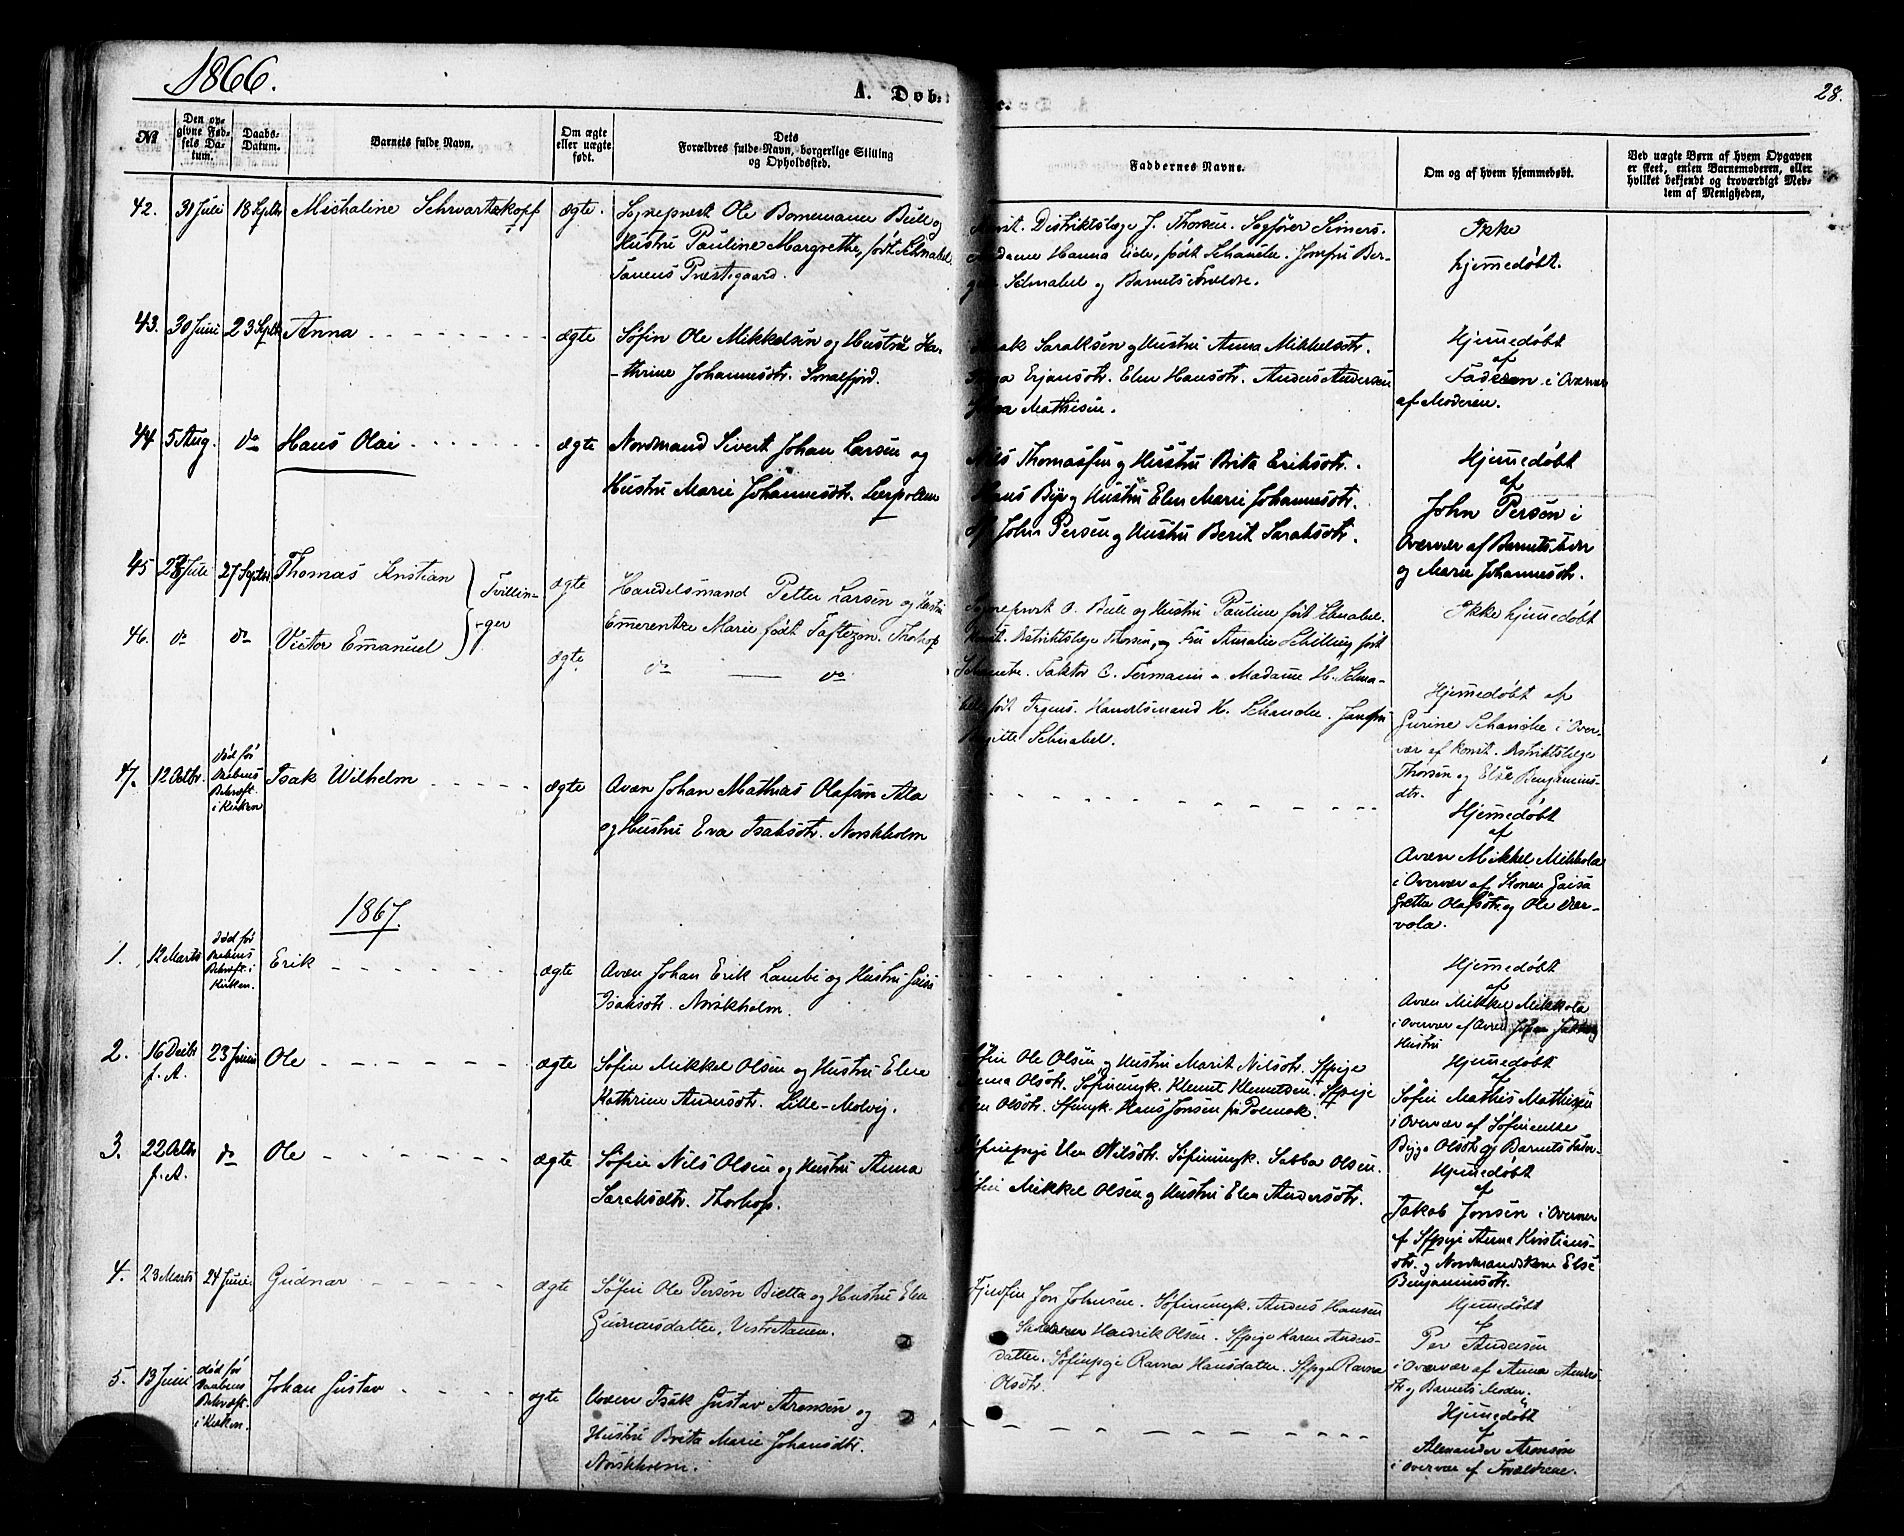 1866.
A. Døbte.
28.
№
Den opgivne Fødsels Datum.
Daabs-Datum.
Barnets fulde Navn.
Om ægte eller uægte født.
Dets Forældres fulde Navn, borgerlige Stilling og Opholdssted.
Faddernes Navne.
Om og af hvem hjemmedøbt.
Ved uægte Børn af hvem Opgaven er skeet, enten Barnemoderen, eller hvilket bekjendt og troværdigt Medlem af Menigheden,
42. 31 Juli 18 Septbr Michaline Schwartzkopf ægte.
Sognepræst Ole Bornemann Bull og
Hustru Pauline Margrethe, født Schnabel
Tanens Præstegaard.
Konst. Distriktslæge J. Thorsen. Sagfører
Madame Hanna født Jomfru
Schnabel og Barnets Forældre.
Ikke
hjemmedøbt.
43. 30 Juni 23 Septbr Anna ægte
Søfin Ole Mikkelsen og Hustru Ka-
thrine Johannesdtr. Smalfjord.
Isak Saraksen og Hustru Anna Mikkelsdtr.
Elen Hansdtr. Anders Andersen
Mathisen.
Hjemmedøbt
af
Faderen i Overvær
af Moderen.
44 5 Aug. do Hans Olai ægte
Nordmand Sivert Johan Larsen og
Hustru Marie Johannesdtr. Leerpolen
Nils Thomassen og Hustru Brita Eriksdtr.
Hans Bye og Hustru Elen Marie Johannesdtr.
John Persen og Hustru Berit Saraksdtr.
Hjemmedøbt
af
John Persen i
Overvær af Barnets Fader
og Marie Johannesdtr.
45 28 Juli 27 Septbr Thomas Kristian Tvillin- ægte
46. do do Victor Emanuel -ger ægte
Handelsmand Petter Larsen og Hustru
Emerentze Marie født Taftezon. Thorhop
do do
Sognepræst O. Bull og Hustru Pauline født Schnabel.
Konst. Distriktslæge Thorsen, og Fru Amalie Schilling født
Schanche. Faktor C. Fermann. Madame H. Schna-
bel, født Handelsmand H. Schanche. Jomfru
Birgitte Schnabel.
Ikke hjemmedøbt
Hjemmedøbt af
Gurine Schanche i Over-
vær af Konst. Distriktslæge
Thorsen og Else Benjamins-
dtr.
47. 12 Octbr. død før Daabens Bekræft. i Kirken Isak Wilhelm ægte
Qvæn Johan Mathias Olafsen Ala
og Hustru Eva Isaksdtr. Norskholm
Hjemmedøbt
af
Qvæn Mikkel Mikkola
i Overvær af Konen Gaisa
Gretta Olafsdtr. og Ole
vola.
1867.
1. 12 Marts død før Daabens Bekræft. i Kirken. Erik ægte
Qvæn Johan Erik Lambi og Hustru Gaisa
Isaksdtr. Norskholm.
Hjemmedøbt
af
Qvæn Mikkel Mikkola
i Overvær af Qvæn
Hustru
2. 16 Decbr f. A. 23 Juni Ole ægte
Søfin Mikkel Olsen og Hustru Elen
Kathrine Andersdtr. Lille-Molvig.
Søfin Ole Olsen og Hustru Marit Nilsdtr. Sfpige
Anna Olsdtr. Søfinungk. Klemet Klemetsen. Sfpige
Elen Olsdtr. Sfungk. Hans Jonsen fra Polmak.
Hjemmedøbt
af
Søfin Mathis Mathisen
i Overvær af Søfinenke
Bigga Olsdtr. og Barnets Fader.
3. 22 Octbr f. A. do Ole ægte
Søfin Nils Olsen og Hustru Anna
Saraksdtr. Thorhop.
Søfinpige Elen Nilsdtr. Søfinungk. Sabba Olsen.
Søfin Mikkel Olsen og Hustru Elen Andersdtr.
Hjemmedøbt
af
Jakob Jonsen i Overvær
af Sfpige Anna Kristians-
dtr. og Nordmandskone Else
Benjaminsdtr.
4. 23 Marts 24 Juni Gudnar ægte
Søfin Ole Persen Bietta og Hustru Elen
Gudnarsdatter, Vestretanen.
Fjeldfin Jon Johnsen. Søfinungk. Anders Hansen
Hendrik Olsen. Sfpige Karen Anders-
datter. Søfinpige Ravna Hansdatter. Sfpige Ravna
Olsdtr.
Hjemmedøbt
af
Per Andersen
i Overvær af Anna Anders-
dtr. og Barnets Moder.
5. 13 Juni død før Daabens Bekræft. i Kirken. Johan Gustav ægte
Qvæn Isak Gustav Aronsen og
Hustru Brita Marie Johansdtr.
Norskholm.
Hjemmedøbt
af
Alexander Aronsen
i Overvær af Forældrene.